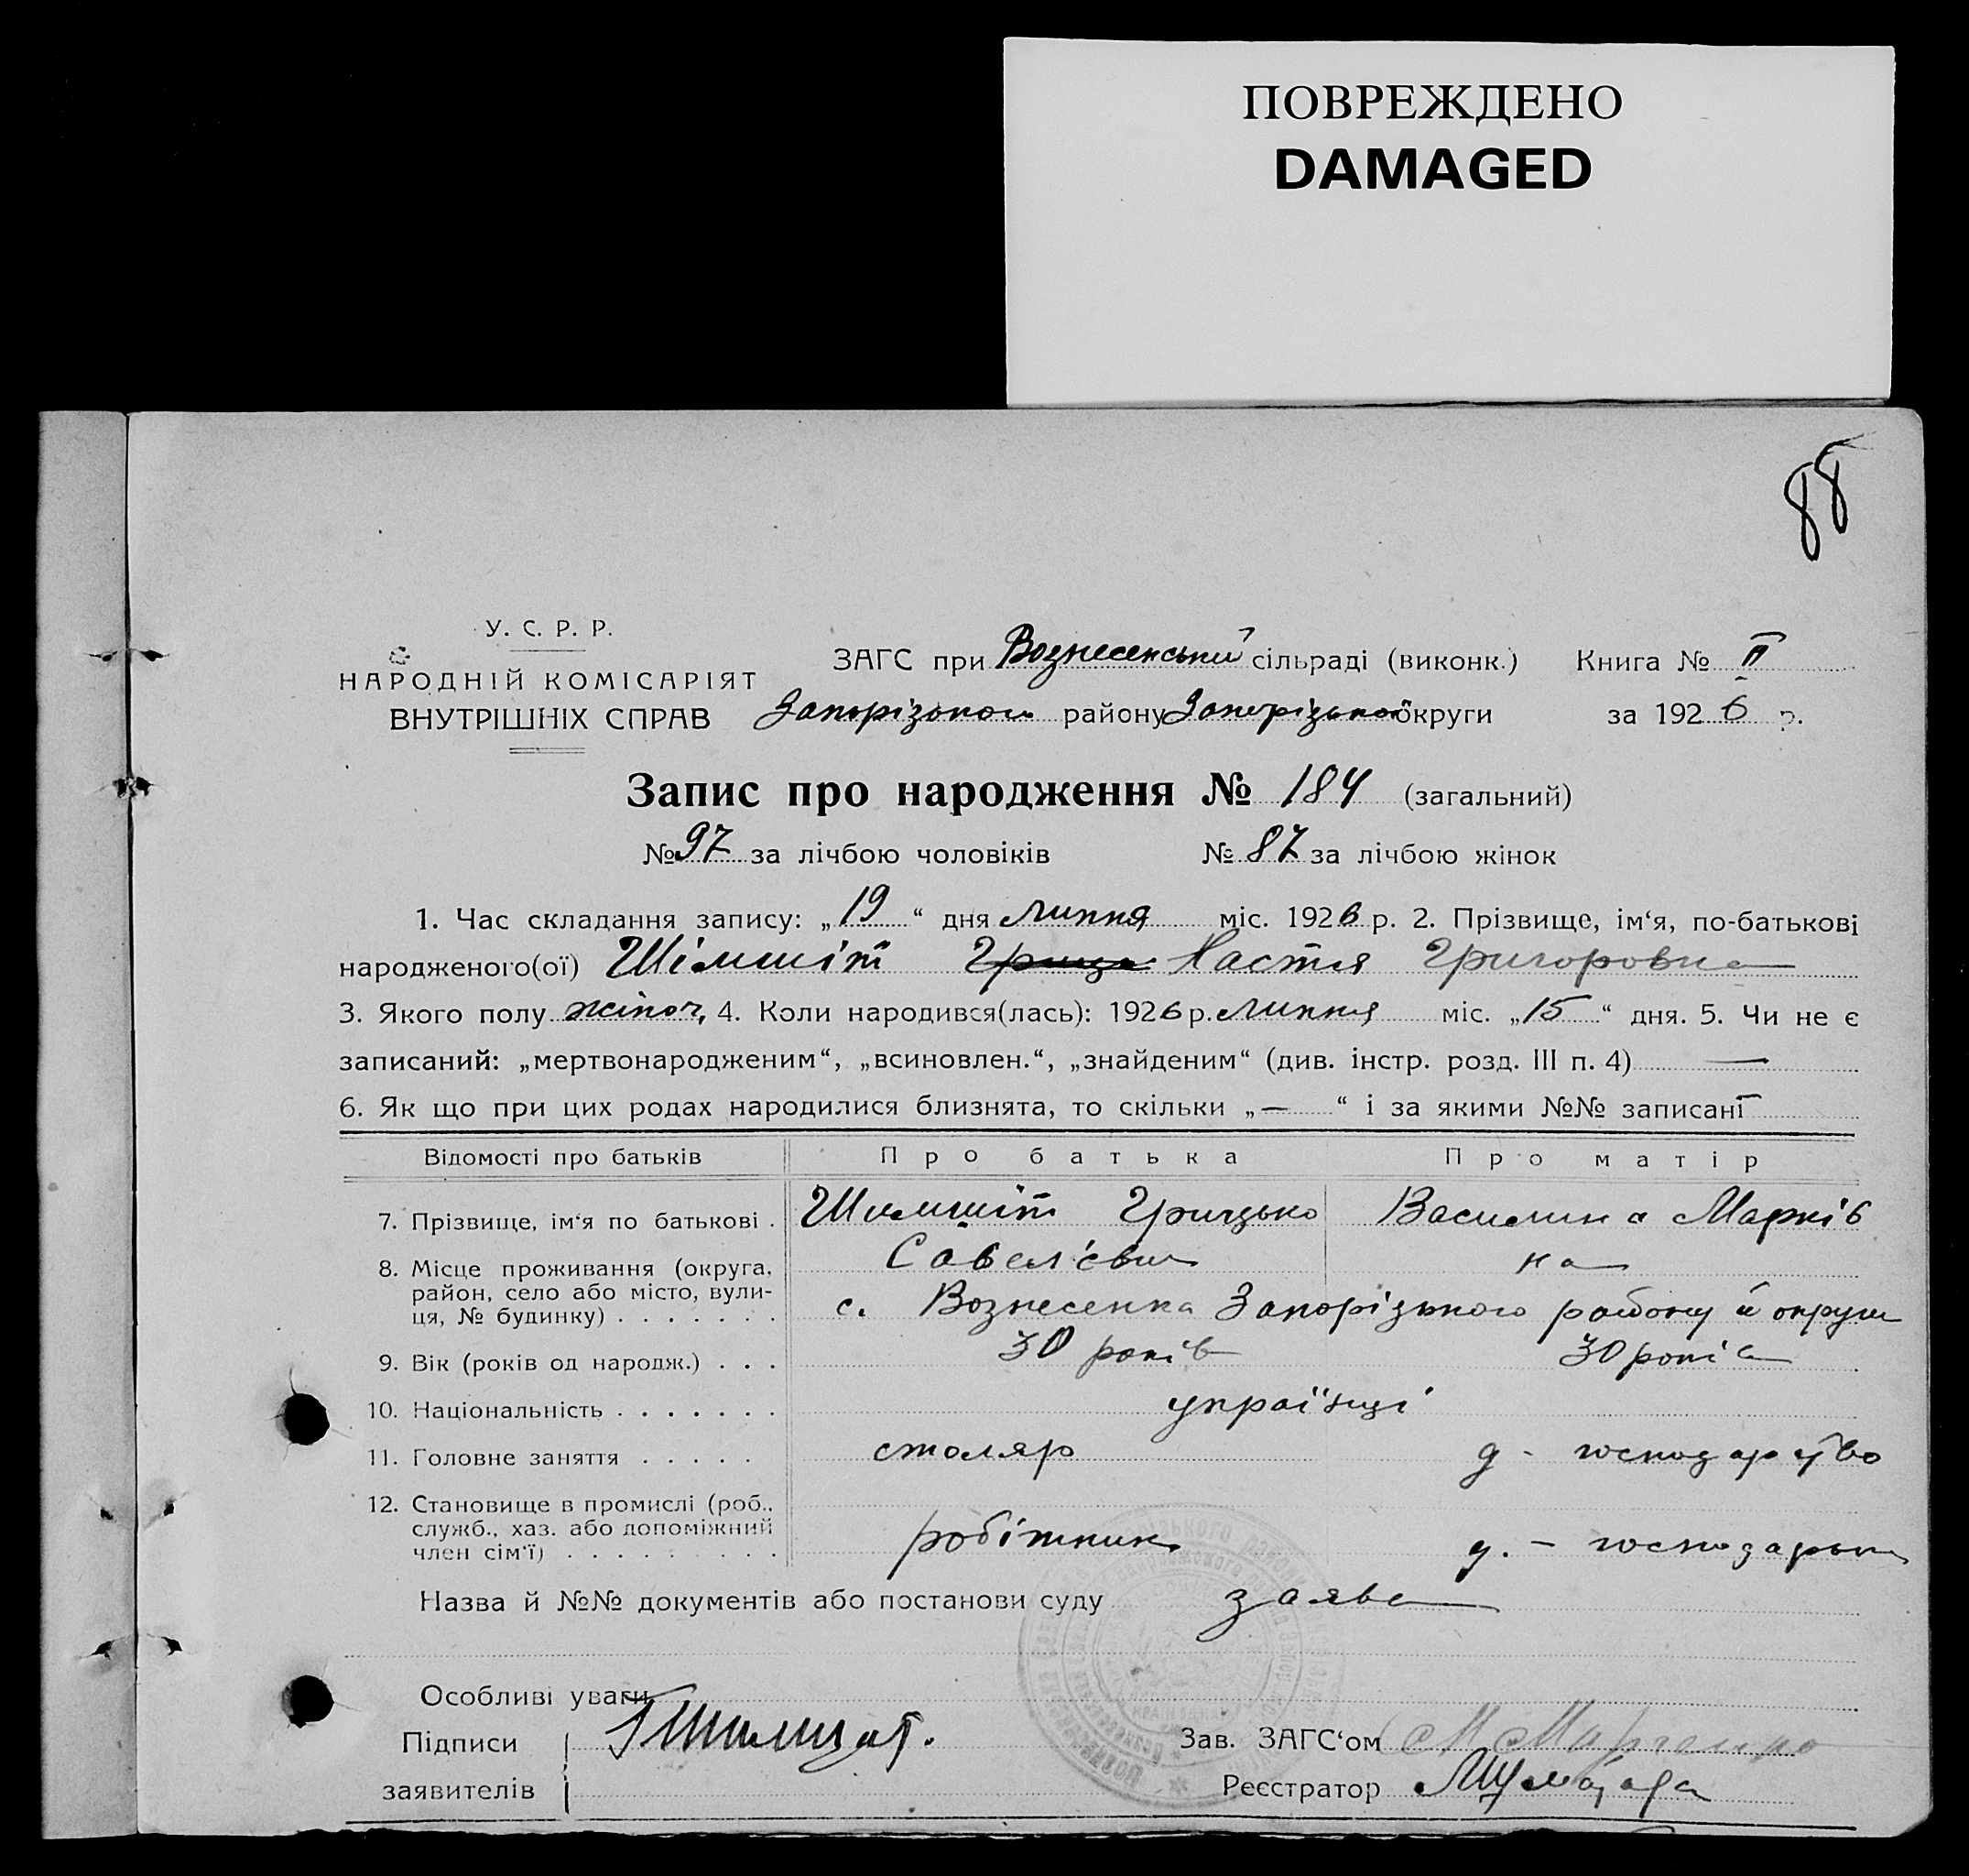 ПОВРЕЖДЕНО
DAMAGED
88
У. С. Р. Р.
НАРОДНІЙ КОМІСАРІЯТ
ВНУТРІШНІХ СПРАВ
ЗАГС при Вознесенській сільраді (виконк.) Книга № II
Запорізького району Запорізької округи за 1926 р.
Запис про народження № 184 (загальний)
№ 97 за лічбою чоловіків № 87 за лічбою жінок
1. Час складання запису: „19“ дня липня міс. 1926 р. 2. Прізвище, ім‘я, по-батькові
народженого(ої) Настя Григоровна
3. Якого полу жіноч, 4. Коли народився(лась): 1926 р. липня міс. „15“ дня. 5. Чи не є
записаний: „мертвонародженим“, „всиновлен.“, „знайденим“ (див. інстр. розд. III п. 4) —
6. Як що при цих родах народилися близнята, то скільки „—“ і за якими №№ записані —
Відомості про батьків Про батька Про матір
7. Прізвище, ім‘я по батькові . Грицько Василина Марків
Савел‘євич на
8. Місце проживання (округа,
район, село або місто, вули-
ця, № будинку) . . . . . . . с. Вознесенка Запорізького району й округи
9. Вік (років од народж.) . . . 30 років 30 років
10. Національність . . . . . . . українці
11. Головне заняття . . . . . столяр д - господарство
12. Становище в промислі (роб.,
служб., хаз. або допоміжний
член сім‘ї) . . . . . . . . . робітник д. - господарка
Назва й №№ документів або постанови суду заява
Особливі уваги
Підписи
заявителів
Зав. ЗАГС‘ом М Марченко
Реєстратор